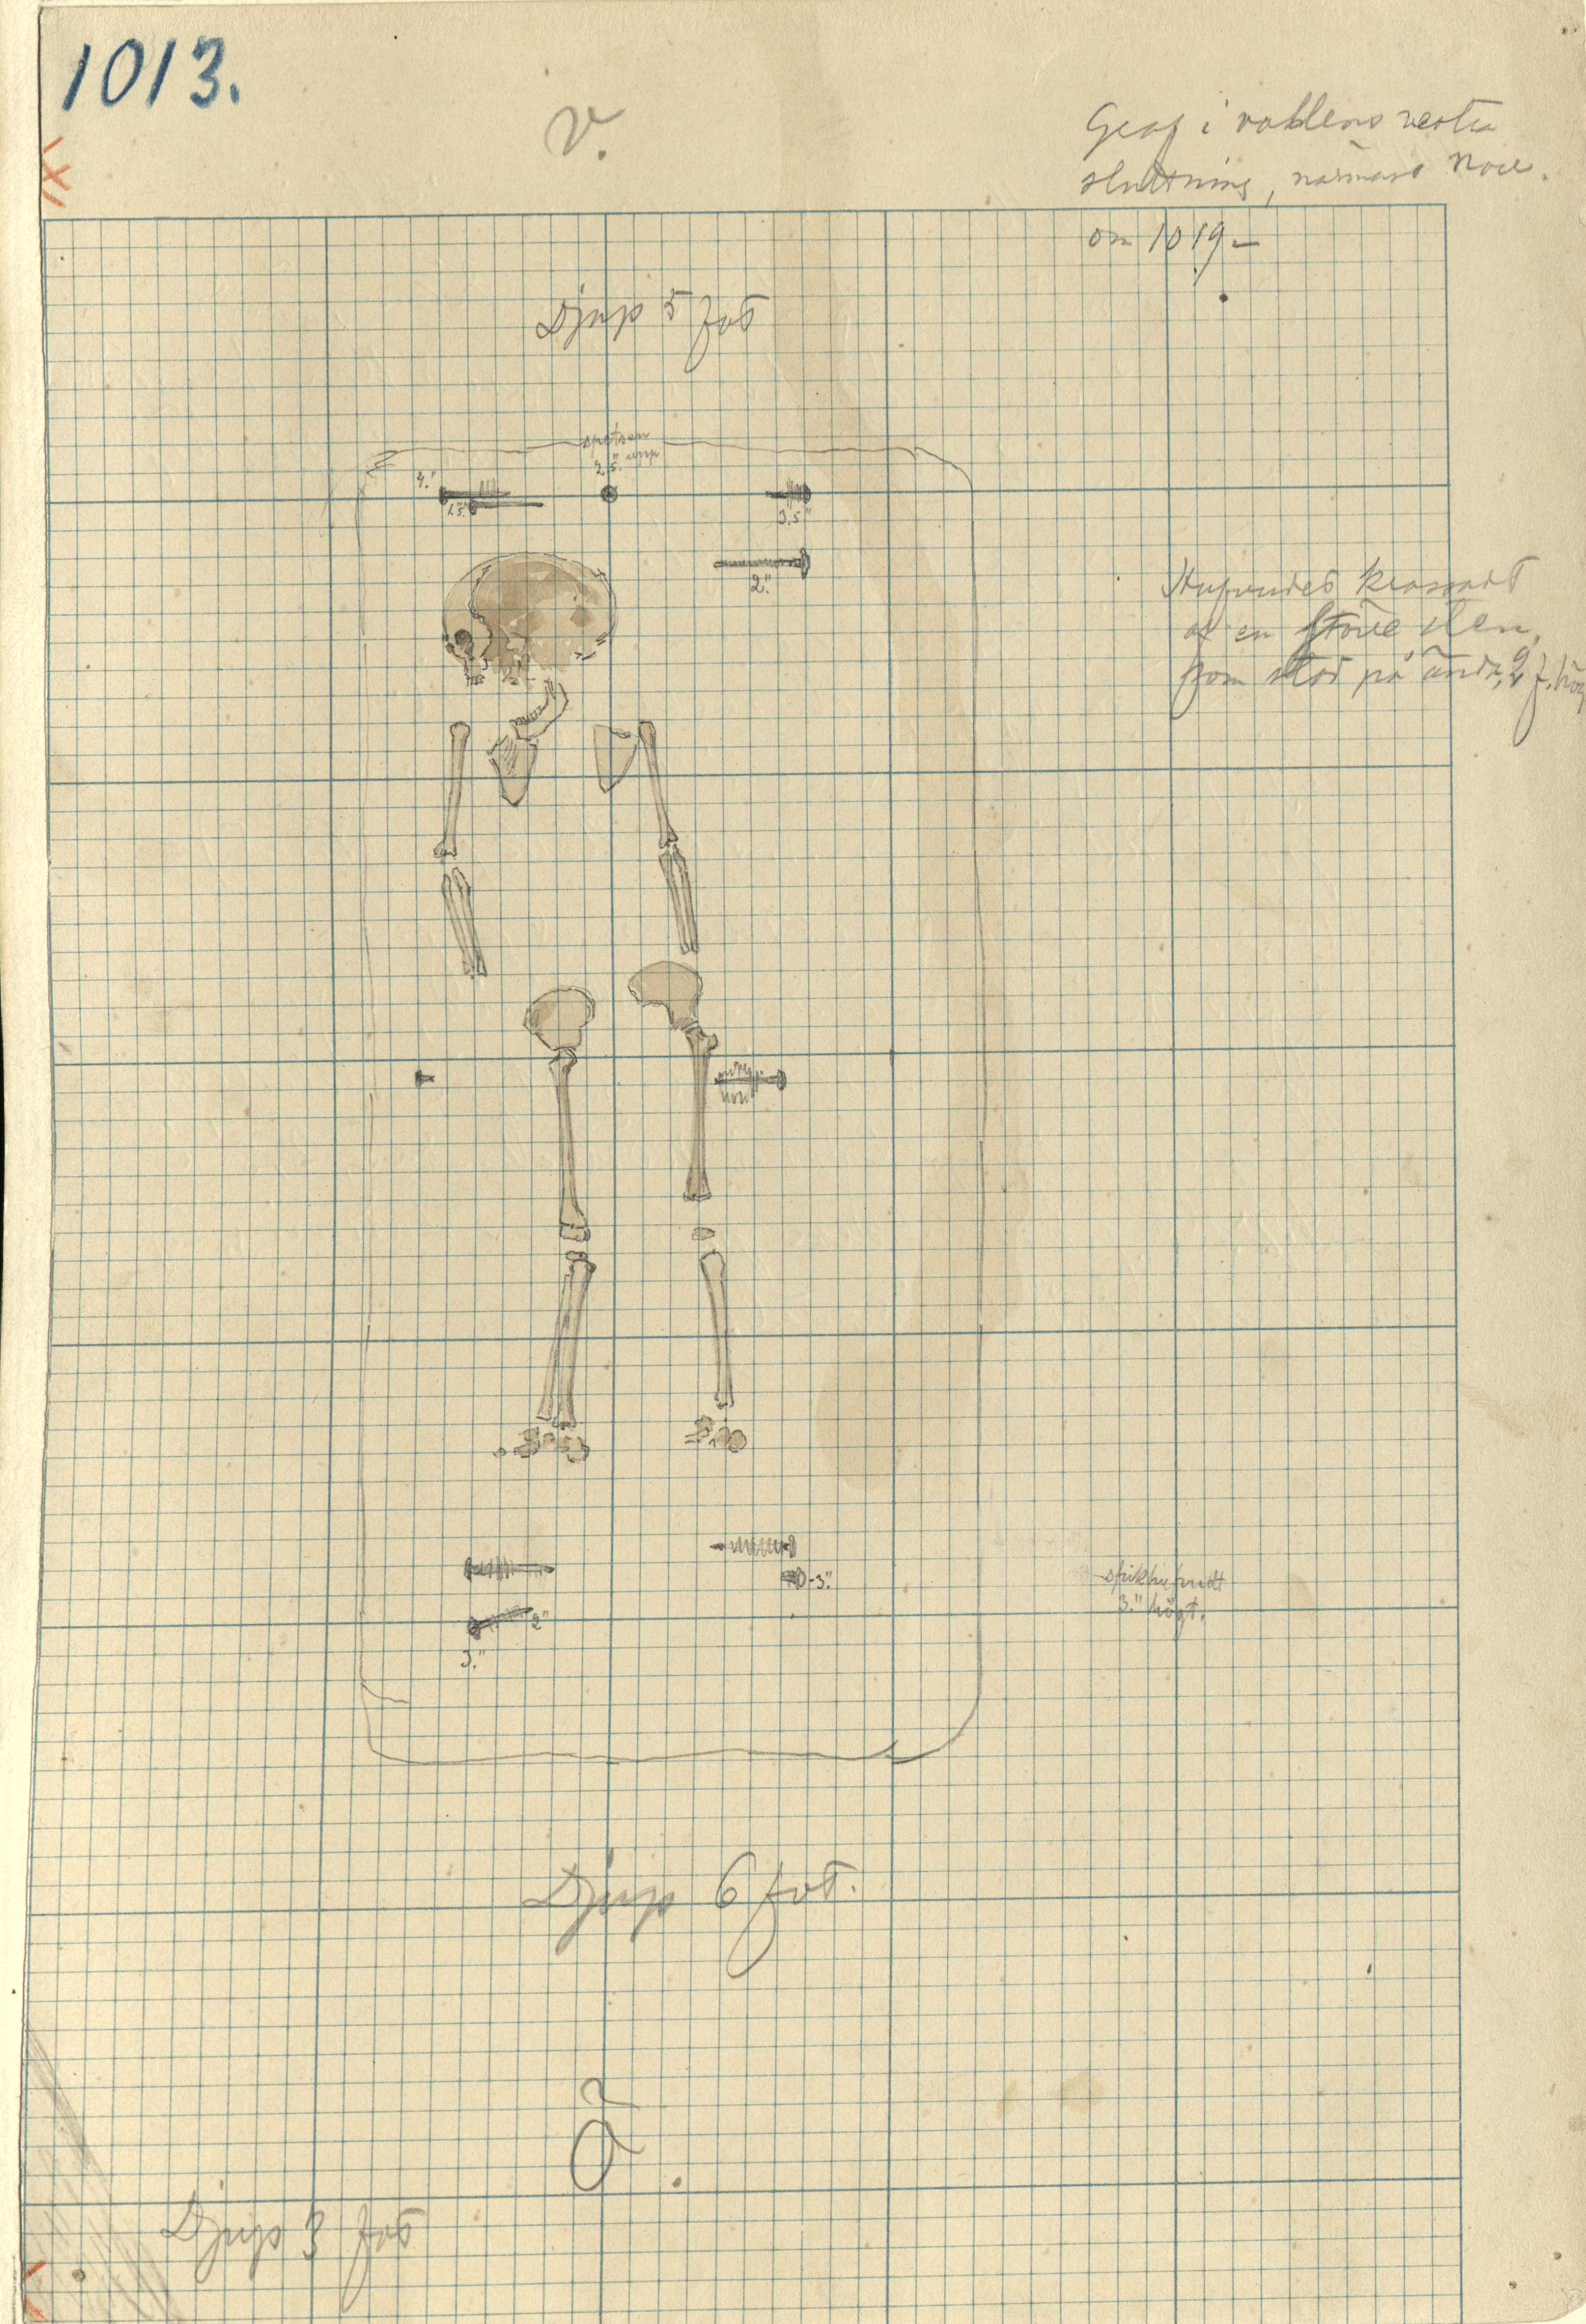 1013.
V.
Graf i vallens vestra
sluttning, närmast norr
om 1019 –
Djup 5 fot
spetsen
2.5." upp
4."
1.5."
3.5"
2."
Hufvudet krossadt
af en större sten,
som stod på ända, 2 f. hög
-3."
spikhufvudt
3." högt.
2"
3."
Djup 6 fot.
Ö.
Djup 3 fot